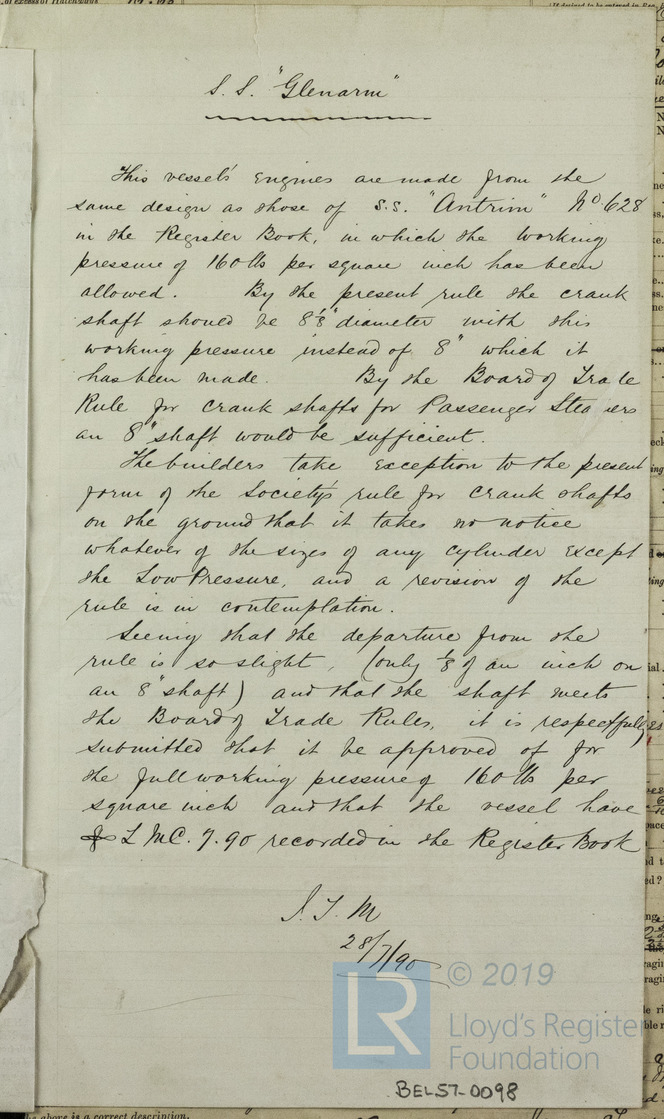 S. S. "Glenarm"
This vessel's engines are made from the
same design as those of S.S. "Antrim" No 628
in the Register Book, in which the working
pressure of 160 lbs per square inch has been
allowed. By the present rule the crank
shaft should be 8 1/8" diameter with this
working pressure instead of 8" which it
has been made. By the Board of Trade
Rule for crank shafts for Passenger Steamers
an 8" shaft would be sufficient.
The builders take exception to the present
form of the Society's rule for crank shafts
on the ground that it takes no notice
whatever of the sizes of any cylinder except
the Low Pressure, and a revision of the
rule is in contemplation.
Seeing that the departure from the
rule is so slight, (only 1/8 of an inch on
an 8" shaft) and that the shaft meets
the Board of Trade Rules, it is respectfully
submitted that it be approved of for
the full working pressure of 160 lb per
square inch and that the vessel have
LMC. 7.90 recorded in the Register Book
28/7/90
© 2019
LR
Lloyd's Register
Foundation
BEL57-0098
the above is a correct description.